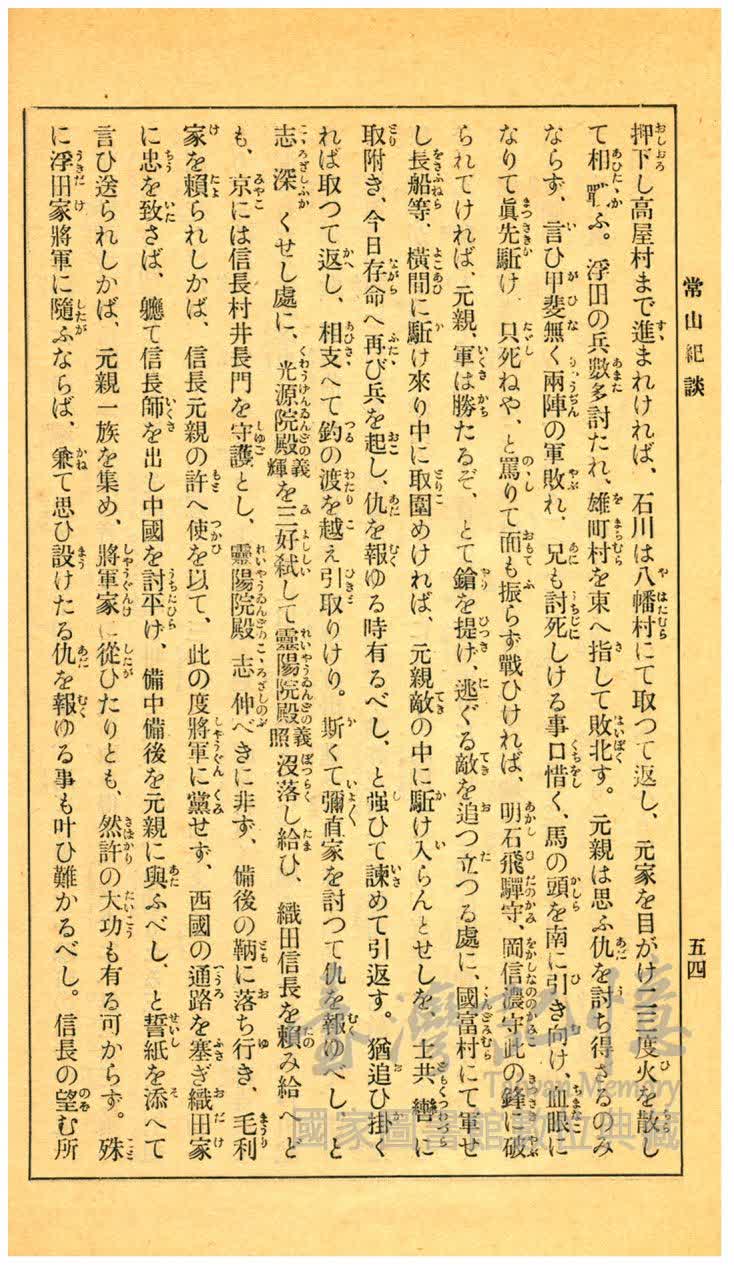 常山紀談
五四
押下し高屋村まで進まれければ、石川は八幡村にて取つて返し、元家を目がけ二三度火を散し
て相戰ふ。浮田の兵數多討たれ、雄町村を東へ指して敗北す。元親は思ふ仇を討ち得ざるのみ
ならず、言ひ甲斐無く兩陣の軍敗れ、兄も討死しける事口惜く、馬の頭を南に引き向け、血眼に
なりて眞先駈け、只死ねや、と罵りて面も振らず戰ひければ、明石飛驒守、岡信濃守此の鋒に破
られてければ、元親、軍は勝たるぞ、とて鎗を提け、逃ぐる敵を追つ立つる處に、國富村にて軍せ
し長船等、橫間に駈け來り中に取圍めければ、元親敵の中に駈け入らんとせしを、士共轡に
取附き、今日存命へ再び兵を起し、仇を報ゆる時有るべし、と强ひて諫めて引返す。猶追ひ掛く
れば取つて返し、相支へて釣の渡を越え引取りけり。斯くて彌直家を討つて仇を報ゆべし、と
志深くせし處に、光源院殿義輝を三好弑して靈陽院殿義照沒落し給ひ、織田信長を賴み給へど
も、京には信長村井長門を守護とし、靈陽院殿志伸べきに非ず、備後の鞆に落ち行き、毛利
家を賴られしかば、信長元親の許へ使を以て、此の度將軍に黨せず、西國の通路を塞ぎ織田家
に忠を致さば、軈て信長師を出し中國を討平げ、備中備後を元親に與ふべし、と誓紙を添へて
言ひ送られしかば、元親一族を集め、將軍家に從ひたりとも、然許の大功も有る可からず。殊
に浮田家將軍に隨ふならば、兼て思ひ設けたる仇を報ゆる事も叶ひ難かるべし。信長の望む所
臺灣記憶
Taiwan Memory
國家圖書館數位典藏